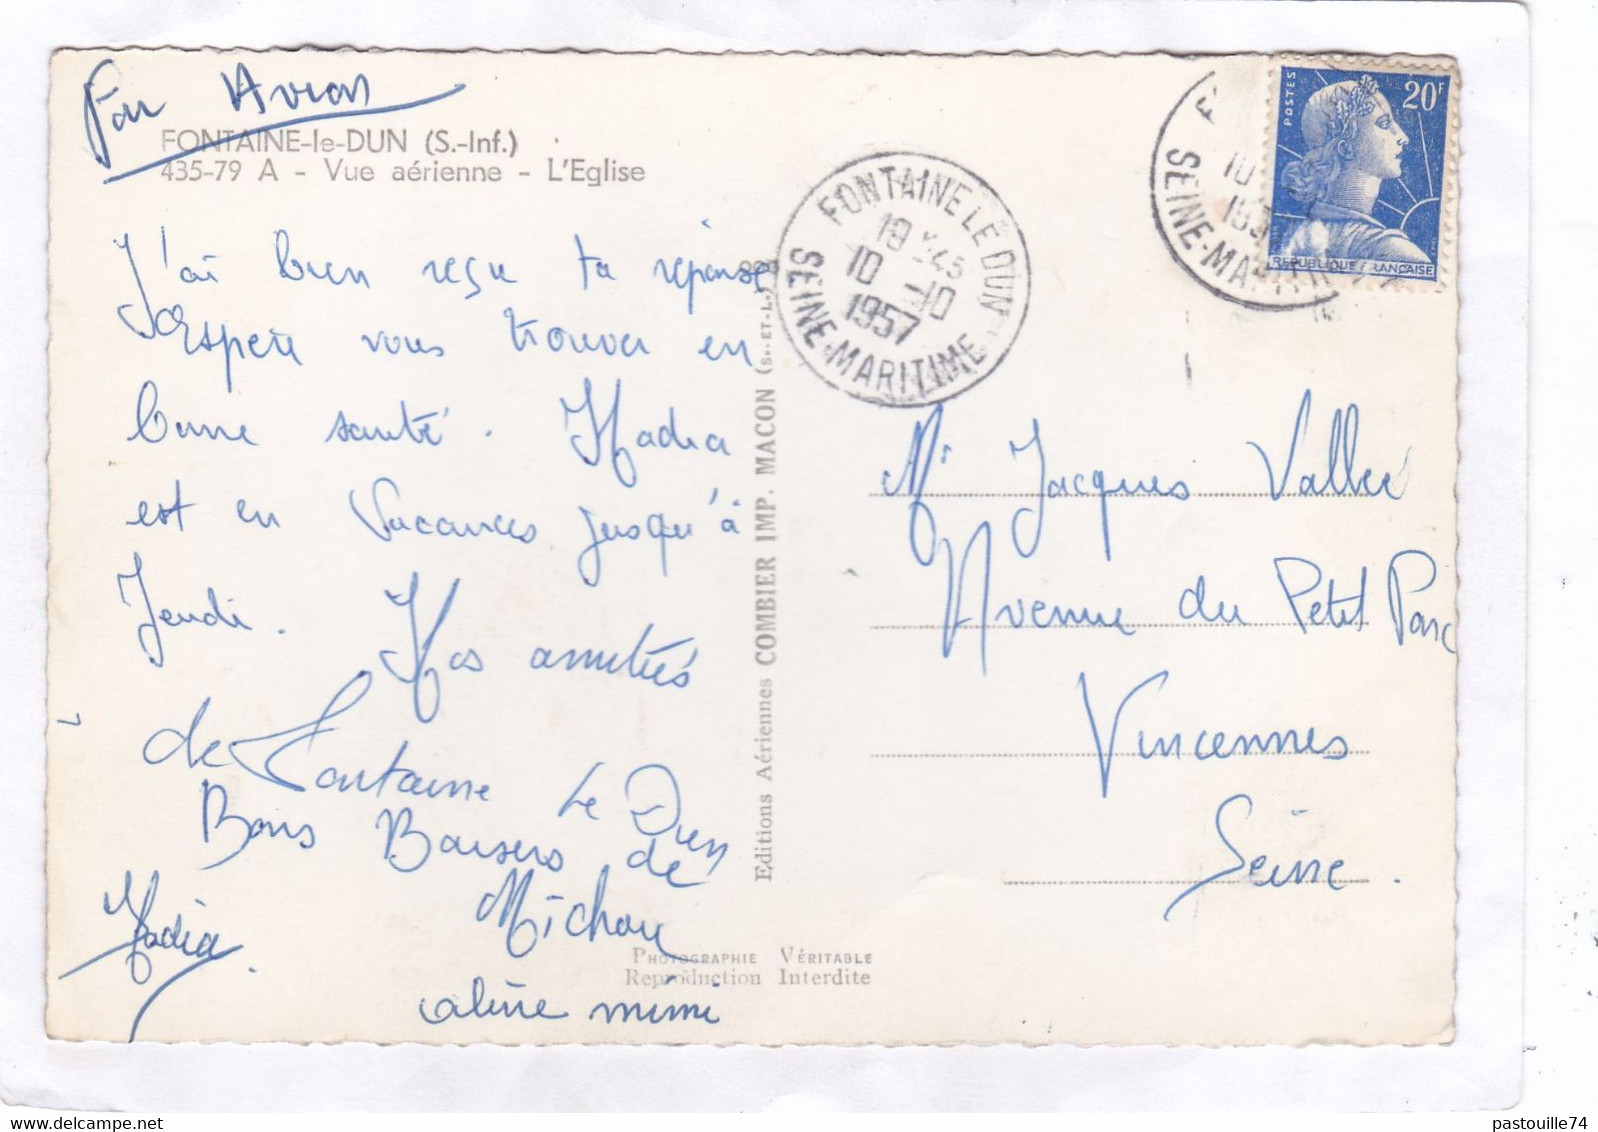 Par Avion
FONTAINE-le-DUN (S.-Inf.)
435-79 A - Vue aérienne - L'Eglise
J'ai bien reçu ta réponse
J'Espère vous trouver en
bonne santé. Nadia
est en Vacances jusqu'à
Jeudi. Nos amitiés
de Fontaine Le Dun
Bons Baisers de
Nadia. Michou
aline mimi
Editions Aériennes COMBIER IMP. MACON (S.-ET-L.)
PHOTOGRAPHIE VÉRITABLE
Reproduction Interdite
FONTAINE LE DUN
19 H45
10 -10
1957
SEINE-MARITIME
SEINE-MARITIME
POSTES
20F
REPUBLIQUE FRANÇAISE
Mr Jacques Vallée
Avenue du Petit Parc
Vincennes
Seine.
pastouille74